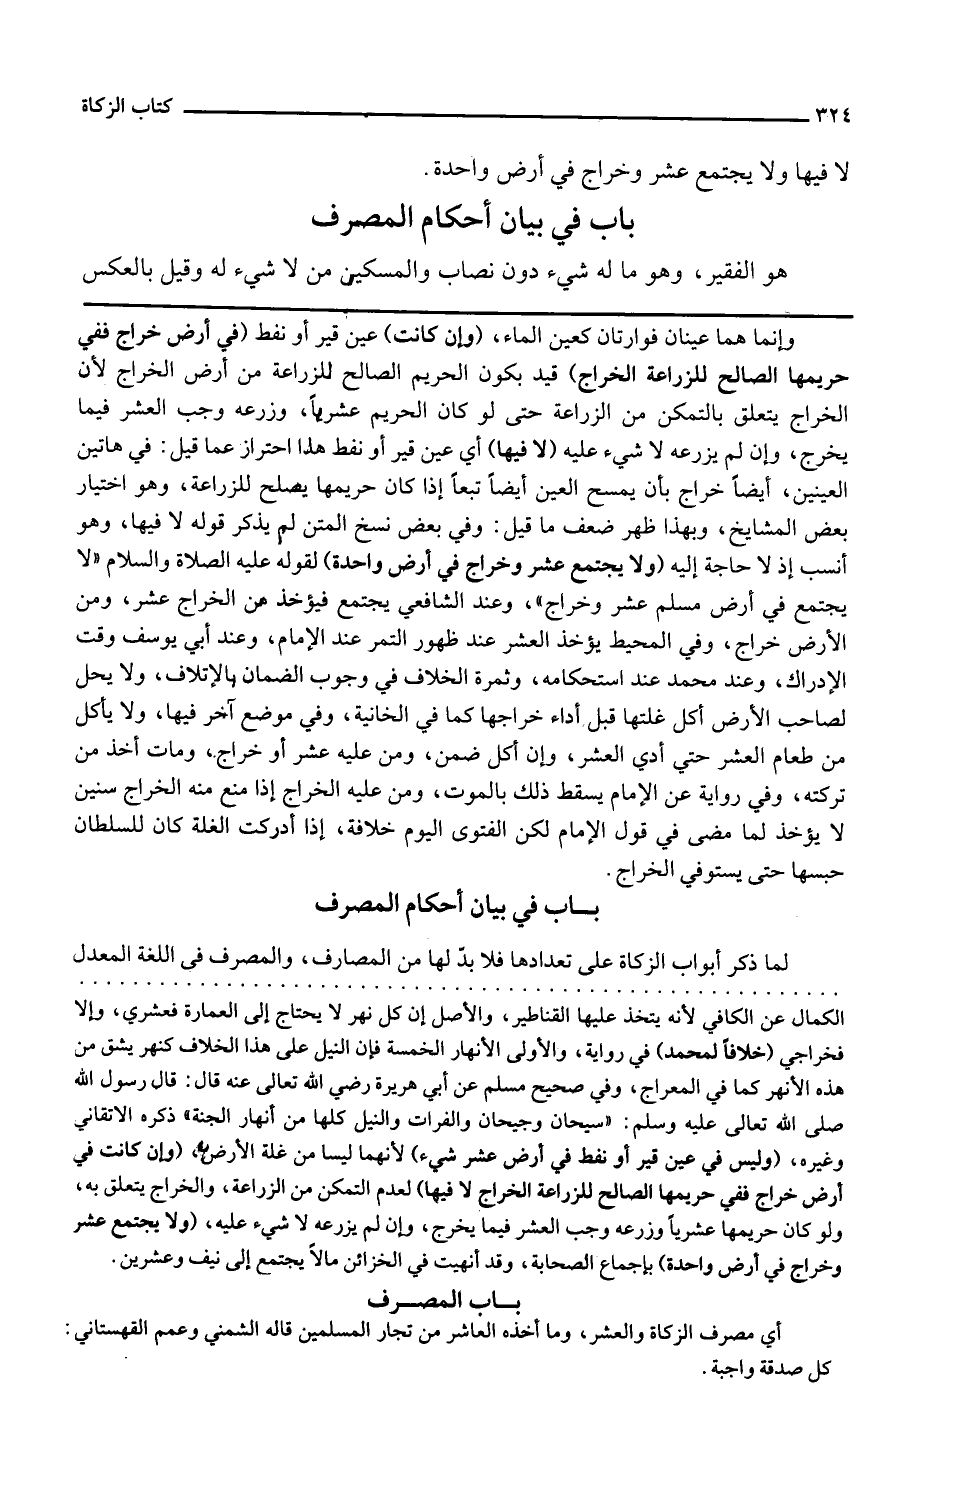 ٣٢٤ كتاب الزكاة
لا فيها ولا يجتمع عشر وخراج في أرض واحدة.
باب في بيان أحكام المصرف
هو الفقير، وهو ما له شيء دون نصاب والمسكين من لا شيء له وقيل بالعكس
وإنما هما عينان فوارتان كعين الماء، (وإن كانت) عين قير أو نفط (في أرض خراج ففي
حريمها الصالح للزراعة الخراج) قيد بكون الحريم الصالح للزراعة من أرض الخراج لأن
الخراج يتعلق بالتمكن من الزراعة حتى لو كان الحريم عشرياً، وزرعه وجب العشر فيما
يخرج، وإن لم يزرعه لا شيء عليه (لا فيها) أي عين قير أو نفط هذا احتراز عما قيل: في هاتين
العينين، أيضاً خراج بأن يمسح العين أيضاً تبعاً إذا كان حريمها يصلح للزراعة، وهو اختيار
بعض المشايخ، وبهذا ظهر ضعف ما قيل: وفي بعض نسخ المتن لم يذكر قوله لا فيها، وهو
أنسب إذ لا حاجة إليه (ولا يجتمع عشر وخراج في أرض واحدة) لقوله عليه الصلاة والسلام «لا
يجتمع في أرض مسلم عشر وخراج»، وعند الشافعي يجتمع فيؤخذ من الخراج عشر، ومن
الأرض خراج، وفي المحيط يؤخذ العشر عند ظهور التمر عند الإمام، وعند أبي يوسف وقت
الإدراك، وعند محمد عند استحكامه، وثمرة الخلاف في وجوب الضمان بالإتلاف، ولا يحل
لصاحب الأرض أكل غلتها قبل أداء خراجها كما في الخانية، وفي موضع آخر فيها، ولا يأكل
من طعام العشر حتي أدي العشر، وإن أكل ضمن، ومن عليه عشر أو خراج، ومات أخذ من
تركته، وفي رواية عن الإمام يسقط ذلك بالموت، ومن عليه الخراج إذا منع منه الخراج سنين
لا يؤخذ لما مضى في قول الإمام لكن الفتوى اليوم خلافة، إذا أدركت الغلة كان للسلطان
حبسها حتى يستوفي الخراج.
بــاب في بيان أحكام المصرف
لما ذكر أبواب الزكاة على تعدادها فلا بدّ لها من المصارف، والمصرف في اللغة المعدل
الكمال عن الكافي لأنه يتخذ عليها القناطير، والأصل إن كل نهر لا يحتاج إلى العمارة فعشري، وإلا
فخراجي (خلافاً لمحمد) في رواية، والأولى الأنهار الخمسة فإن النيل على هذا الخلاف كنهر يشق من
هذه الأنهر كما في المعراج، وفي صحيح مسلم عن أبي هريرة رضي الله تعالى عنه قال: قال رسول الله
صلى الله تعالى عليه وسلم: «سيحان وجيحان والفرات والنيل كلها من أنهار الجنة» ذكره الاتقاني
وغيره، (وليس في عين قير أو نفط في أرض عشر شيء) لأنهما ليسا من غلة الأرض، (وإن كانت في
أرض خراج ففي حريمها الصالح للزراعة الخراج لا فيها) لعدم التمكن من الزراعة، والخراج يتعلق به،
ولو كان حريمها عشرياً وزرعه وجب العشر فيما يخرج، وإن لم يزرعه لا شيء عليه، (ولا يجتمع عشر
وخراج في أرض واحدة) بإجماع الصحابة، وقد أنهيت في الخزائن مالاً يجتمع إلى نيف وعشرين.
بــاب المصــرف
أي مصرف الزكاة والعشر، وما أخذه العاشر من تجار المسلمين قاله الشمني وعمم القهستاني:
كل صدقة واجبة.